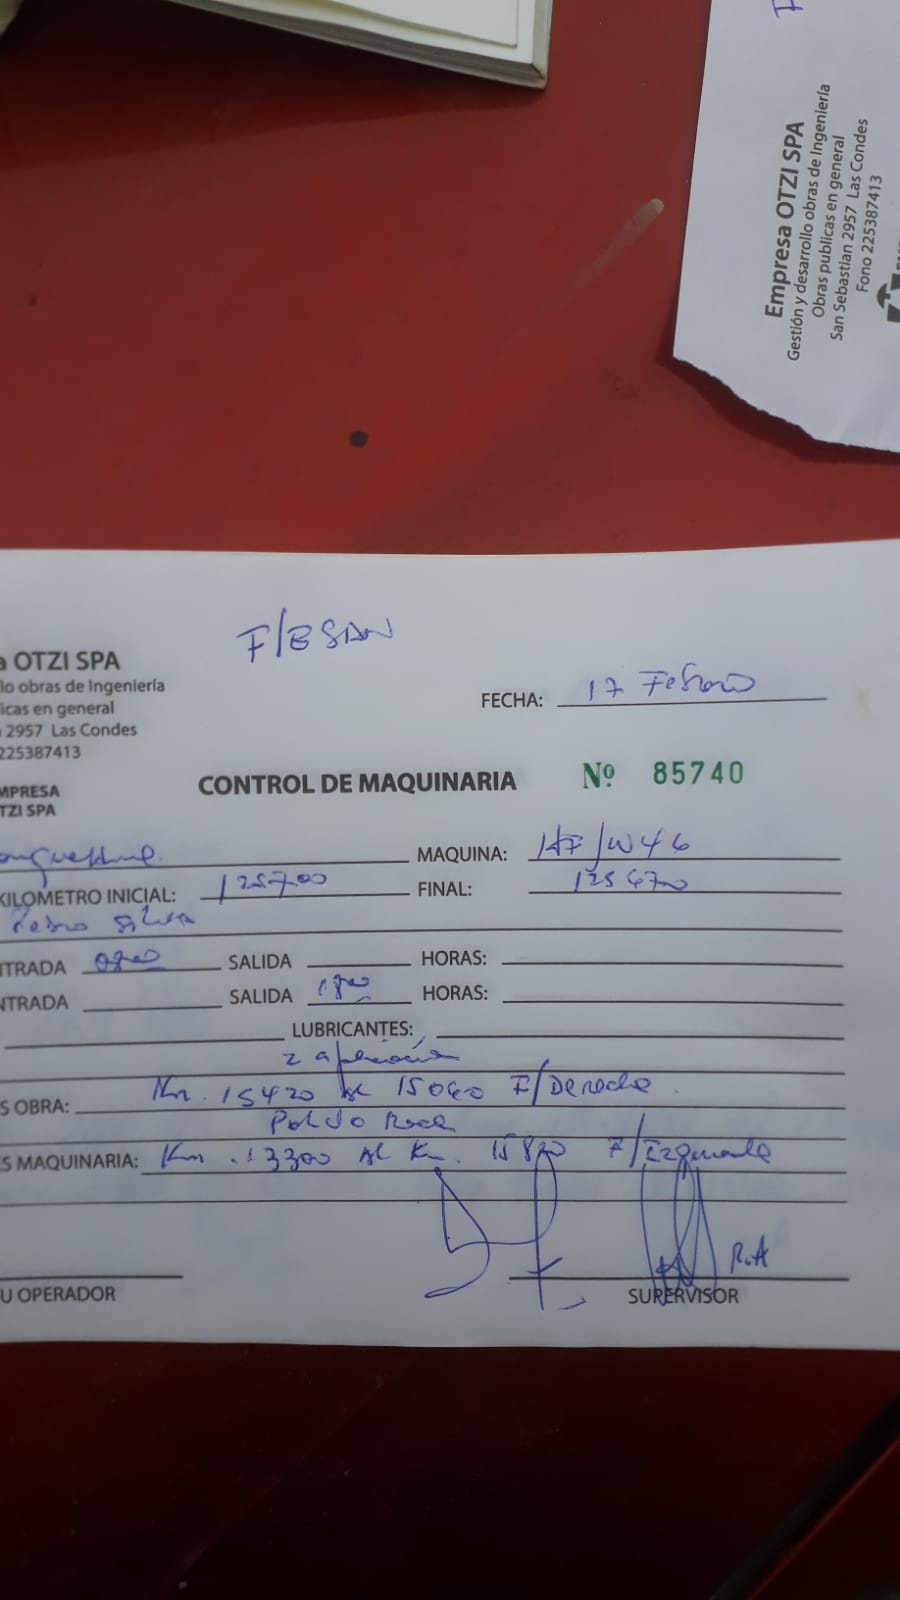 Empresa OTZI SPA
Gestión y desarrollo obras de Ingeniería
Obras publicas en general
San Sebastian 2957 Las Condes
Fono 225387413
F/ESAN
a OTZI SPA
lo obras de Ingeniería
icas en general
2957 Las Condes
225387413
MPRESA
TZI SPA
FECHA: 17 Febrero
CONTROL DE MAQUINARIA Nº 85740
MAQUINA: HF/W46
KILOMETRO INICIAL: 125700 FINAL: 125670
Pedro Silva
NTRADA 0800 SALIDA HORAS:
NTRADA SALIDA 1800 HORAS:
LUBRICANTES:
2 aplicación
S OBRA: Km. 15420 al 15060 F/Derecha.
Polvo Roca
ES MAQUINARIA: Km. 13300 Al Km. F/Izquierda
R.A
U OPERADOR SUPERVISOR